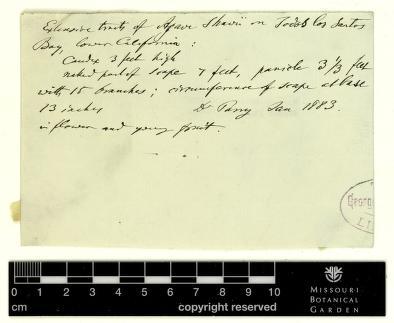 Extensive tracts of Agave Shawii on Todos los Santos
Bay, Lower California:
Caudex 3 feet high
naked part of scape 7 feet, panicle 3 1/3 feet
with 15 branches; circumference of scape at base
13 inches Dr Parry Jan 1883.
in flower and young fruit.
0 1 2 3 4 5 6 7 8 9 10
cm copyright reserved
MISSOURI
BOTANICAL
GARDEN